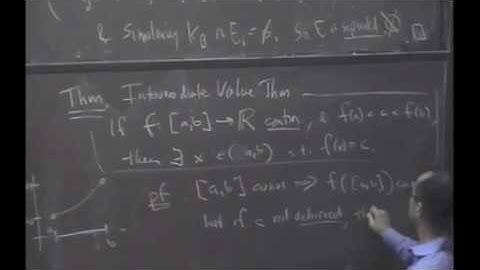 & similarly K_B ∩ E_1 = ∅, so E is separated
Thm. Intermediate Value Thm
If f: [a,b] → ℝ contin, & f(a) < c < f(b),
then ∃ x ∈ (a,b) s.t. f(x) = c.
pf [a,b] conn ⇒ f([a,b])
but if c not achieved,
a b